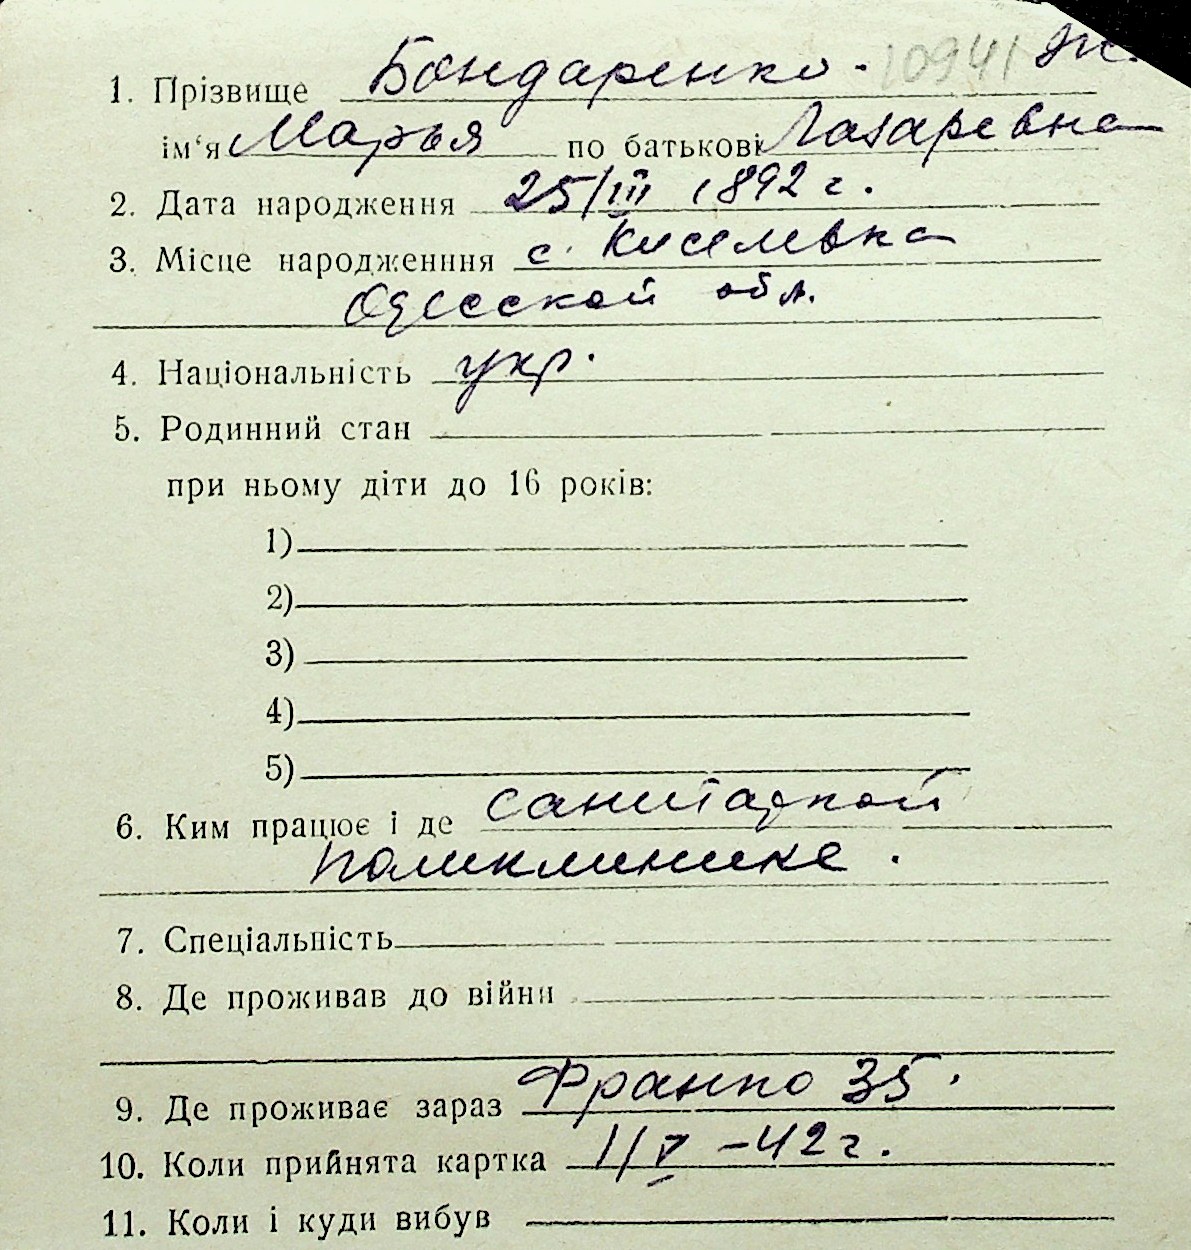 1. Прізвище Бондаренко. 10941 Ж.
ім'я Марья по батькові Лазаревна
2. Дата народження 25/III 1892 г.
3. Місце народженння с. Киселевка
Одесской обл.
4. Національність укр.
5. Родинний стан
при ньому діти до 16 років:
1)
2)
3)
4)
5)
6. Ким працює і де санитаркой
поликлинике.
7. Спеціальність
8. Де проживав до війни
9. Де проживає зараз Франко 35.
10. Коли прийнята картка 1/V - 42 г.
11. Коли і куди вибув